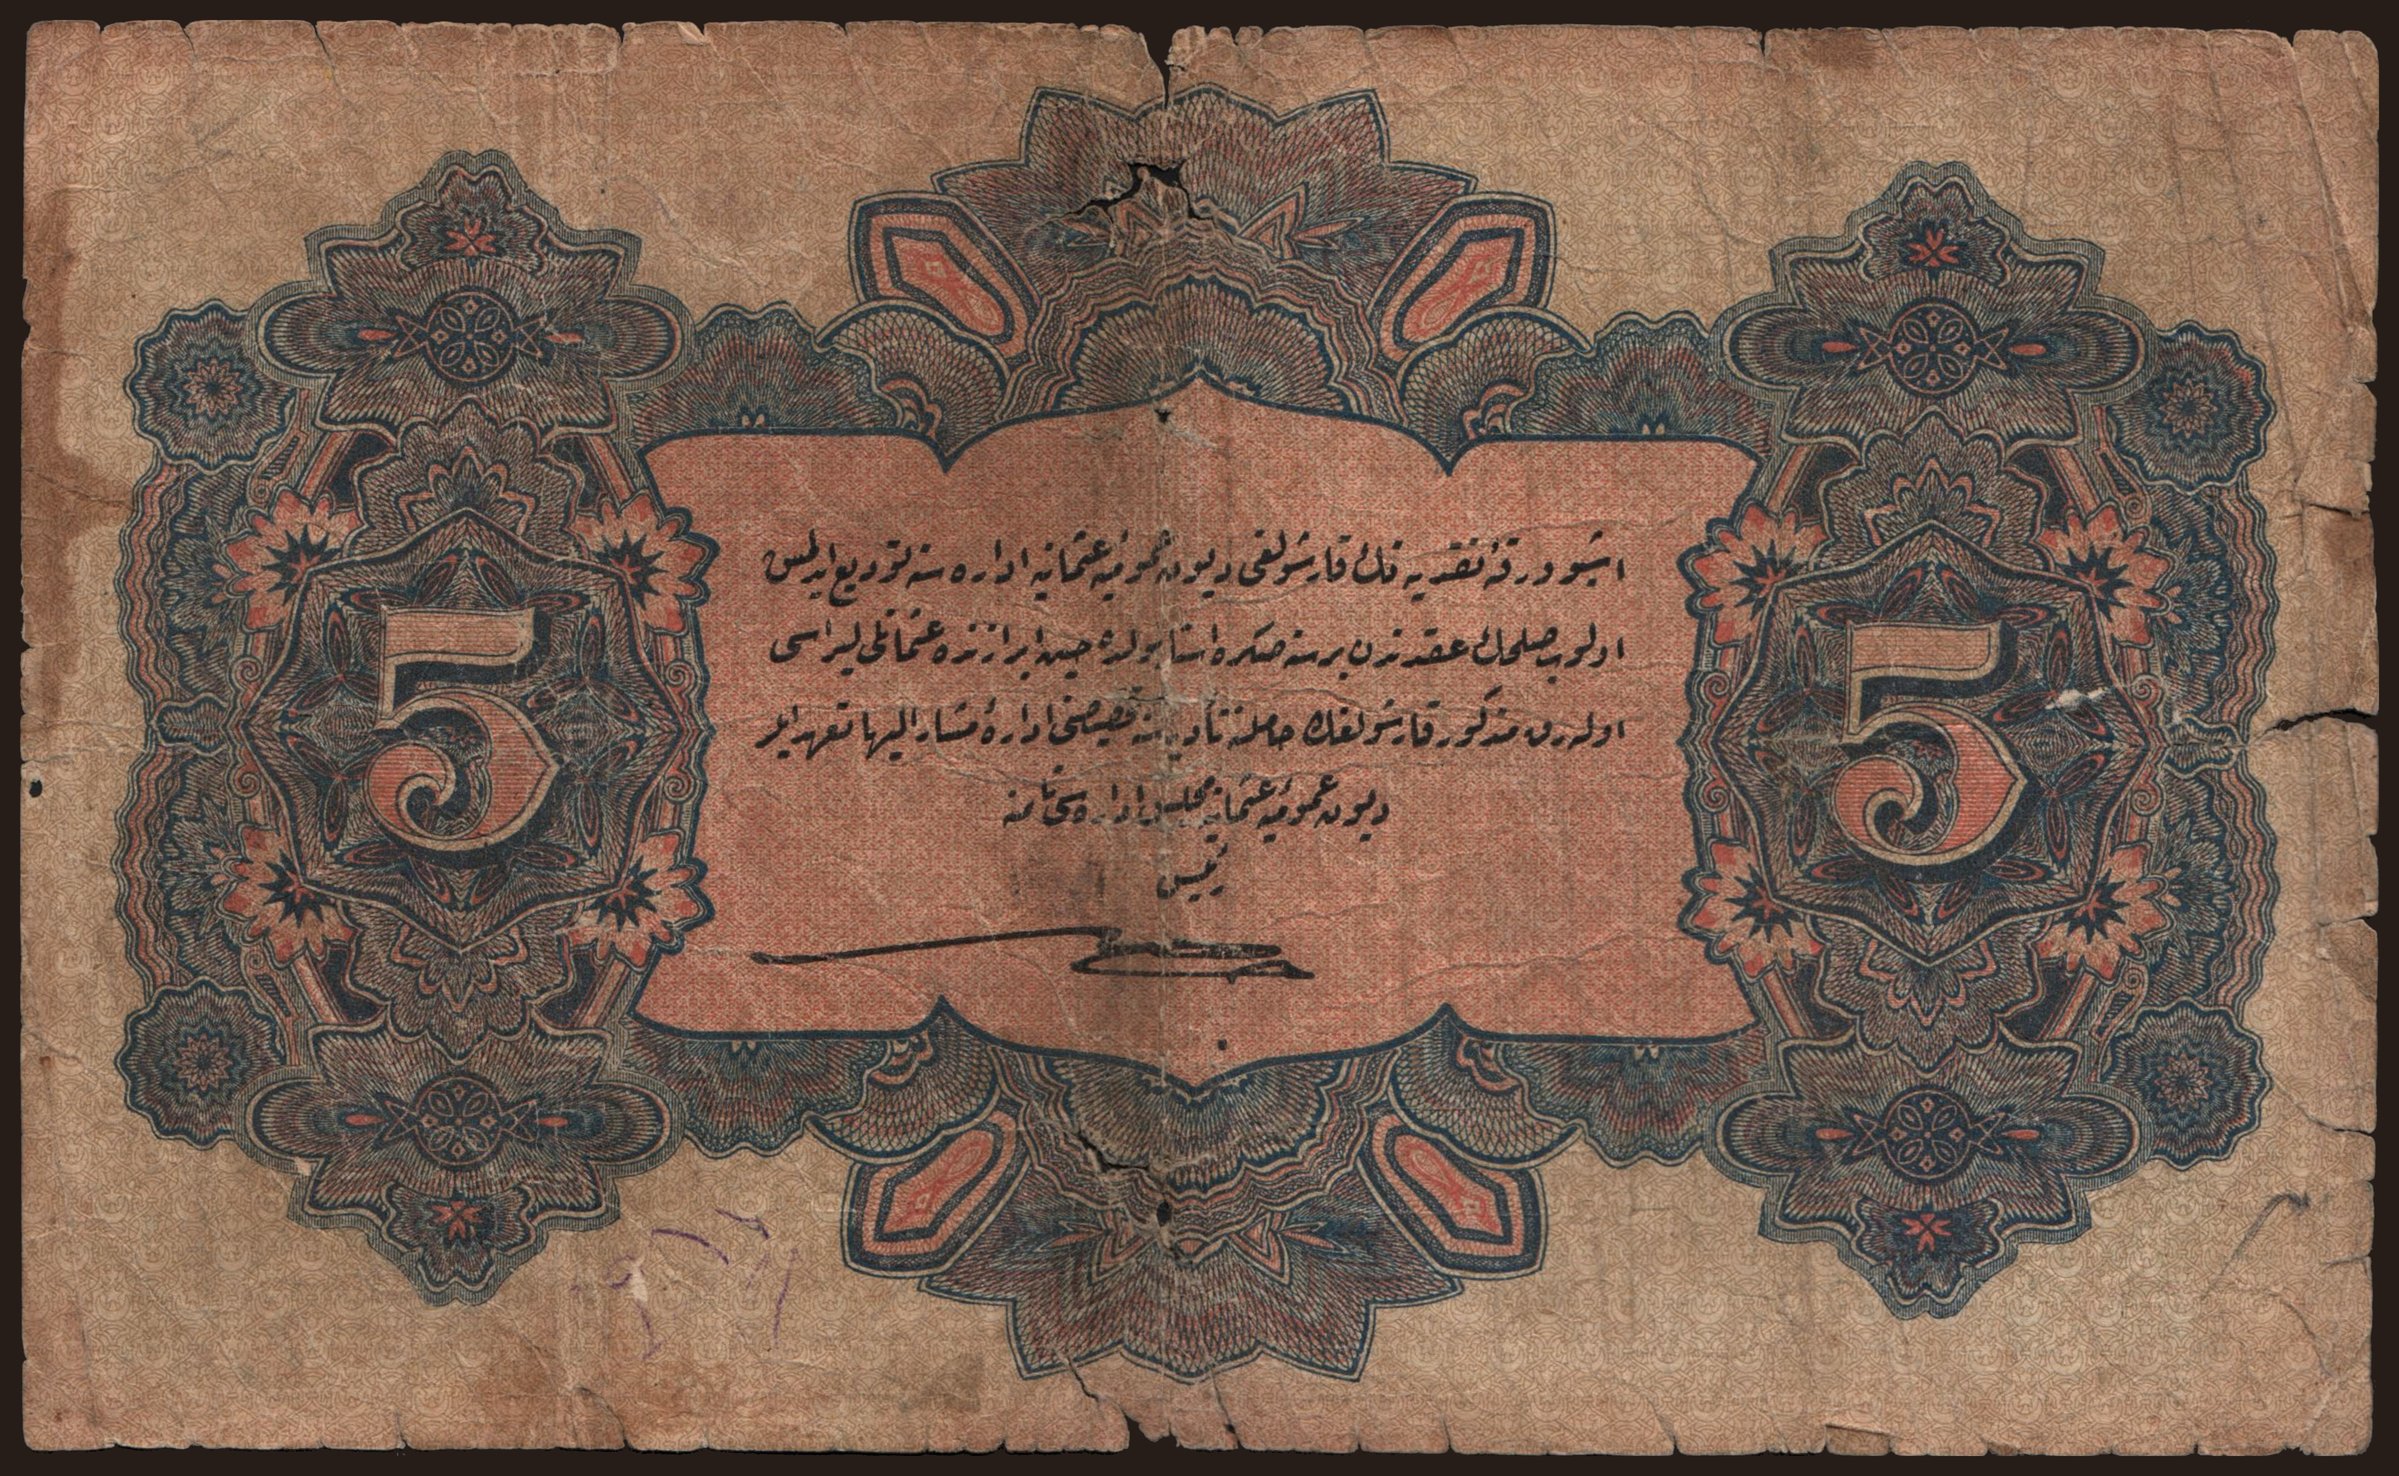 اشبو ورقهٔ نقديه نك قارشولغی ديون عموميهٔ عثمانيه اداره سنه توديع ايدلمش
اولوب صلحك عقدندن بر سنه صكره استانبولده حين ابرازنده عثمانلی ليراسی
اوله رق مذكور قارشولغك حاملنه تأديه سنه اداره مشار اليها تعهد ايلر
ديون عموميهٔ عثمانيه مجلس اداره سی نامنه
رئيس
5 5